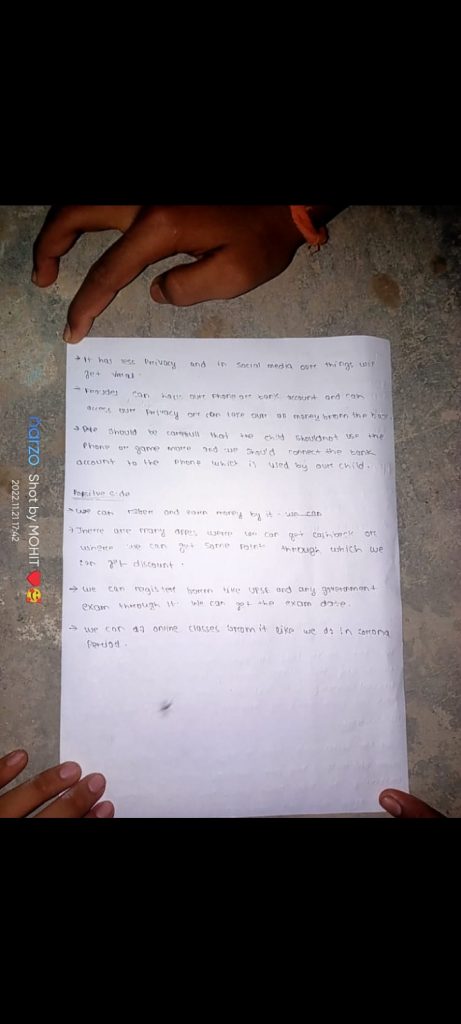 → It has less Privacy and in social media our things will
get viral.
→ Frauders can hack our Phone or bank account and can
access our Privacy or can take our all money from the
→ We should be carefull that the child shouldnot use the
Phone or game more and we should connect the bank
account to the Phone which is used by our child.
Positive side
→ We can and earn money by it. we can
→ There are many apps where we can get cashback or
where we can get some points through which we
can get discount.
→ We can register form like UPSE and any government
exam through it. We can get the exam date.
→ We can do online classes from it like we do in corona
Period.
narzo Shot by MOHIT ❤️😍
2022.11.21 17:42